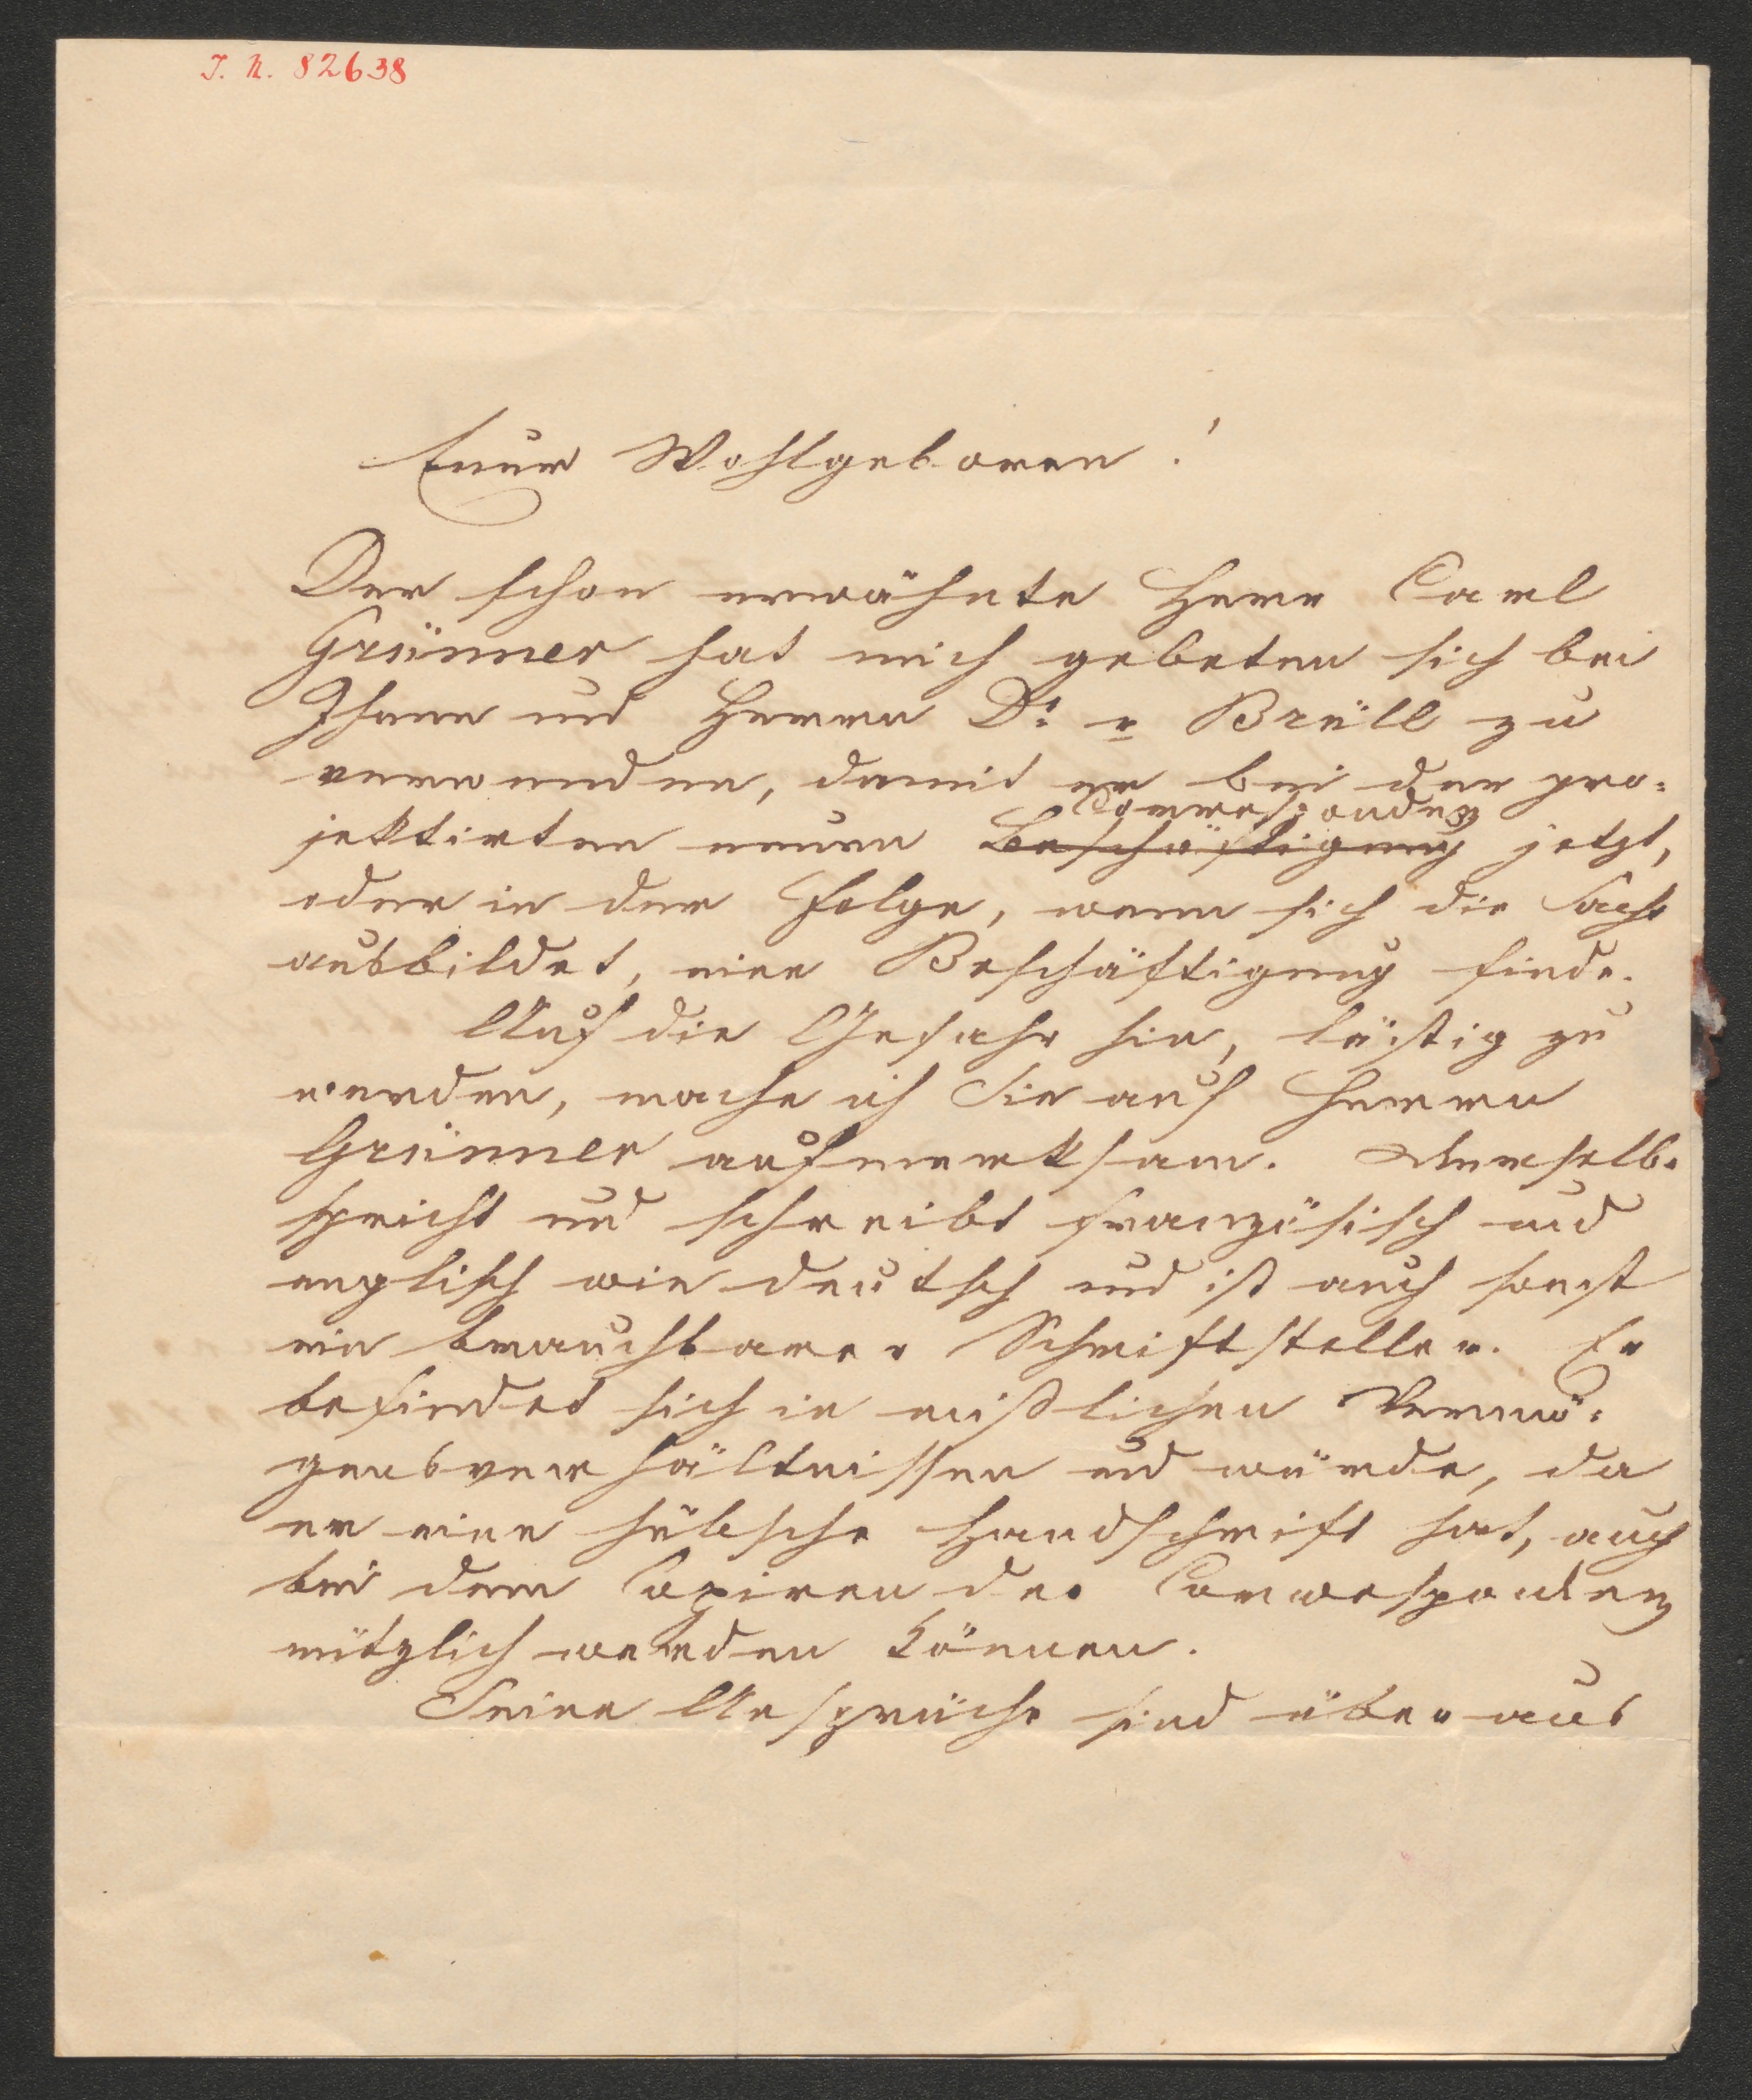 J. N. 82638
Euer Wohlgeboren!
Der schon erwähnte Herr Carl
Grünner hat mich gebeten sich bei
Ihnen und Herrn Dr. v Brüll zu
verwenden, damit er bei der pro-
Correspondenz
jektirten neuen Beschäftigung jetzt,
oder in der Folge, wenn sich die Sache
ausbildet, eine Beschäftigung finde.
Auf die Gefahr hin, lästig zu
werden, mache ich Sie auf Herrn
Grünner aufmerksam. Derselbe
spricht und schreibt französisch und
englisch wie deutsch und ist auch sonst
ein brauchbarer Schriftsteller. Er
befindet sich in mißlichen Vermö-
gensverhältnissen und würde, da
er eine hübsche Handschrift hat, auch
bei dem Copiren der Correspondenz
nützlich werden können.
Seine Ansprüche sind überaus